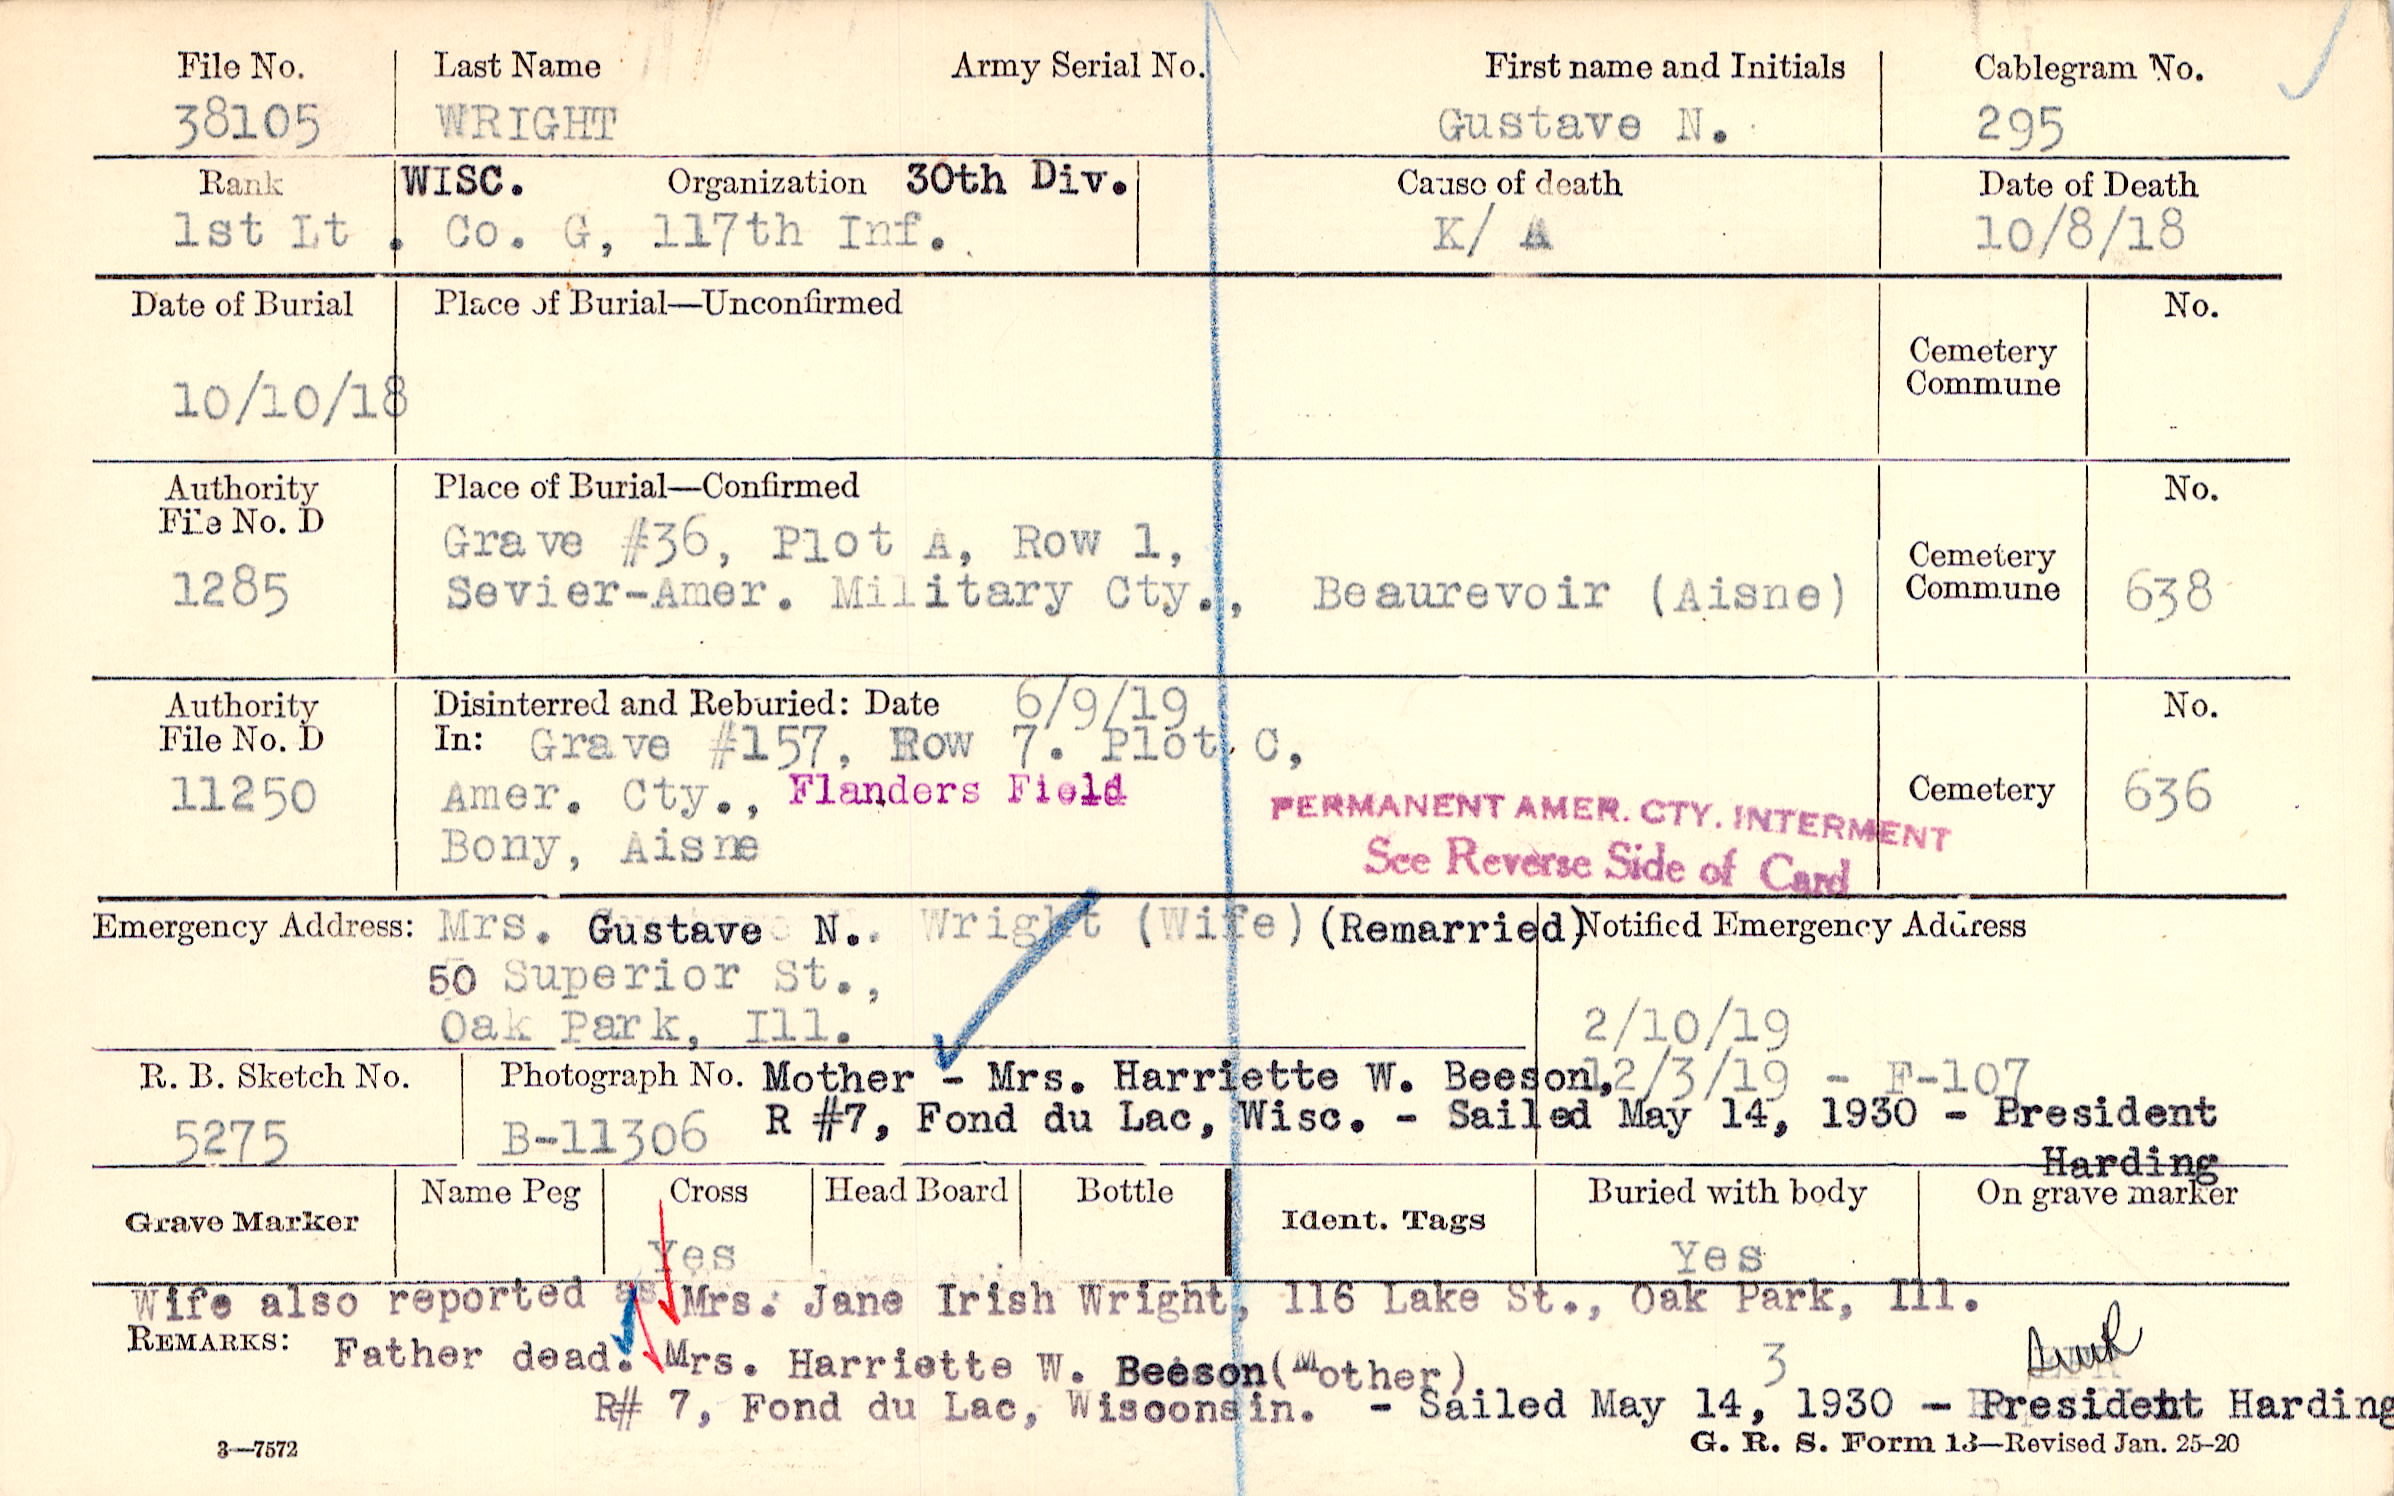 File No. Last Name Army Serial No. First name and Initials Cablegram No.
38105 WRIGHT Gustave N. 295
Rank WISC. Organization 30th Div. Cause of death Date of Death
1st Lt. Co. G, 117th Inf. K/ A 10/8/18
Date of Burial Place of Burial—Unconfirmed No.
Cemetery
Commune
10/10/18
Authority Place of Burial—Confirmed No.
File No. D
Grave #36, Plot A, Row 1,
Cemetery
1285 Sevier-Amer. Military Cty., Beaurevoir (Aisne) Commune 638
Authority Disinterred and Reburied: Date 6/9/19 No.
File No. D In: Grave #157, Row 7. Plot C,
11250 Amer. Cty., Flanders Field Cemetery 636
PERMANENT AMER. CTY. INTERMENT
Bony, Aisne See Reverse Side of Card
Emergency Address: Mrs. Gustave N. Wright (Wife) (Remarried) Notified Emergency Address
50 Superior St.,
Oak Park, Ill. 2/10/19
R. B. Sketch No. Photograph No. Mother - Mrs. Harriette W. Beeson, 12/3/19 - F-107
5275 B-11306 R #7, Fond du Lac, Wisc. - Sailed May 14, 1930 - President
Harding
Grave Marker Name Peg Cross Head Board Bottle Ident. Tags Buried with body On grave marker
Yes Yes
Wife also reported as Mrs. Jane Irish Wright, 116 Lake St., Oak Park, Ill.
REMARKS: Father dead. Mrs. Harriette W. Beeson (Mother) 3
R# 7, Fond du Lac, Wisconsin. - Sailed May 14, 1930 - President Harding
3—7572 G. R. S. Form 13—Revised Jan. 25-20